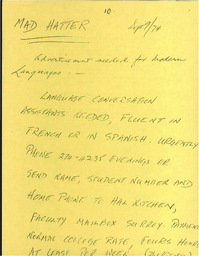 10
MAD HATTER Sept/74
Advertisement needed for Modern
Languages: —
LANGUAGE CONVERSATION
ASSISTANTS NEEDED, FLUENT IN
FRENCH OR IN SPANISH. URGENTLY
PHONE EVENINGS OR
SEND NAME, STUDENT NUMBER AND
HOME PHONE TO HAL KITCHEN,
FACULTY MAILBOX SURREY. PAYMENT
NORMAL COLLEGE RATE, FOUR HOURS
AT LEAST PER WEEK